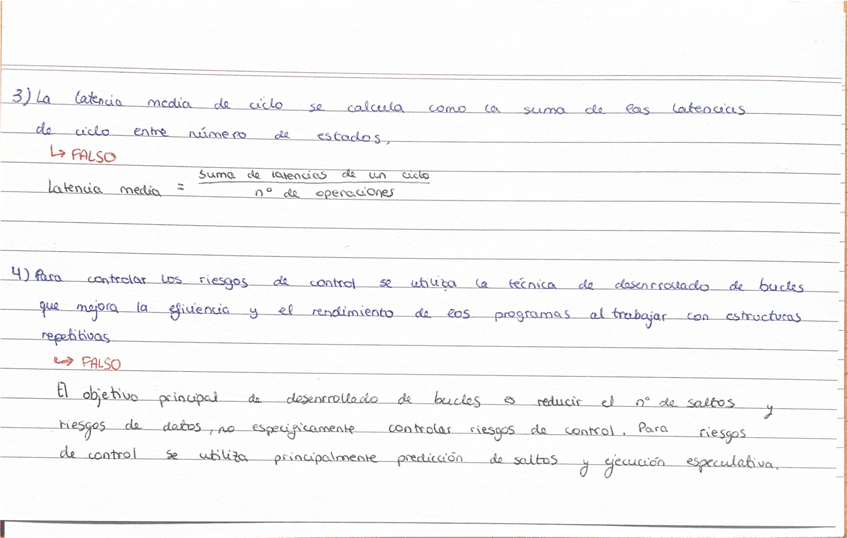 3) La latencia media de ciclo se calcula como la suma de las latencias
de ciclo entre número de estados,
↳ FALSO
Latencia media = suma de latencias de un ciclo
nº de operaciones
4) Para controlar los riesgos de control se utiliza la técnica de desenrrollado de bucles
que mejora la eficiencia y el rendimiento de los programas al trabajar con estructuras
repetitivas
↳ FALSO
El objetivo principal de desenrrollado de bucles es reducir el nº de saltos y
riesgos de datos, no especificamente controlar riesgos de control. Para riesgos
de control se utiliza principalmente predicción de saltos y ejecución especulativa.